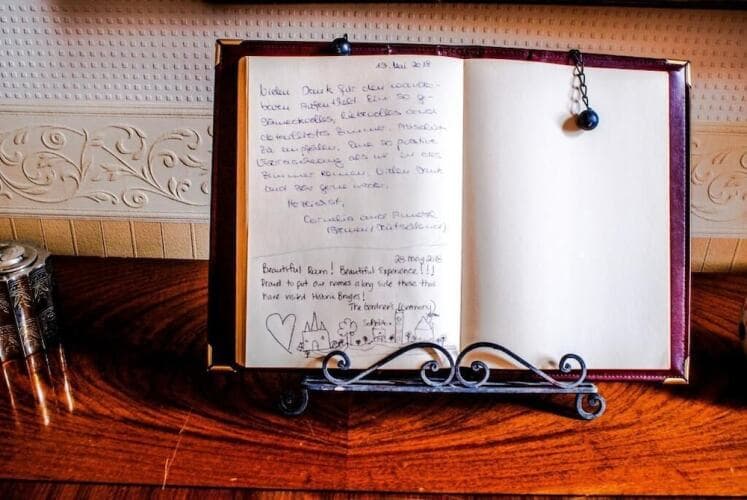 19. Mai 2018
Vielen Dank für den wunder-
baren Aufenthalt. Ein so ge-
schmackvolles, liebevolles und
detailliertes Zimmer. Absolut
zu empfehlen. Eine so positive
Überraschung als wir in das
Zimmer kamen. Vielen Dank
und sehr gerne wieder.
Herzlichst,
Cornelia und
(Bremen/Deutschland)
28 May 2018
Beautiful Room! Beautiful Experience!!!
Proud to put our names along side those that
have visited Historic Bruges!
The Gardner's
Sophia